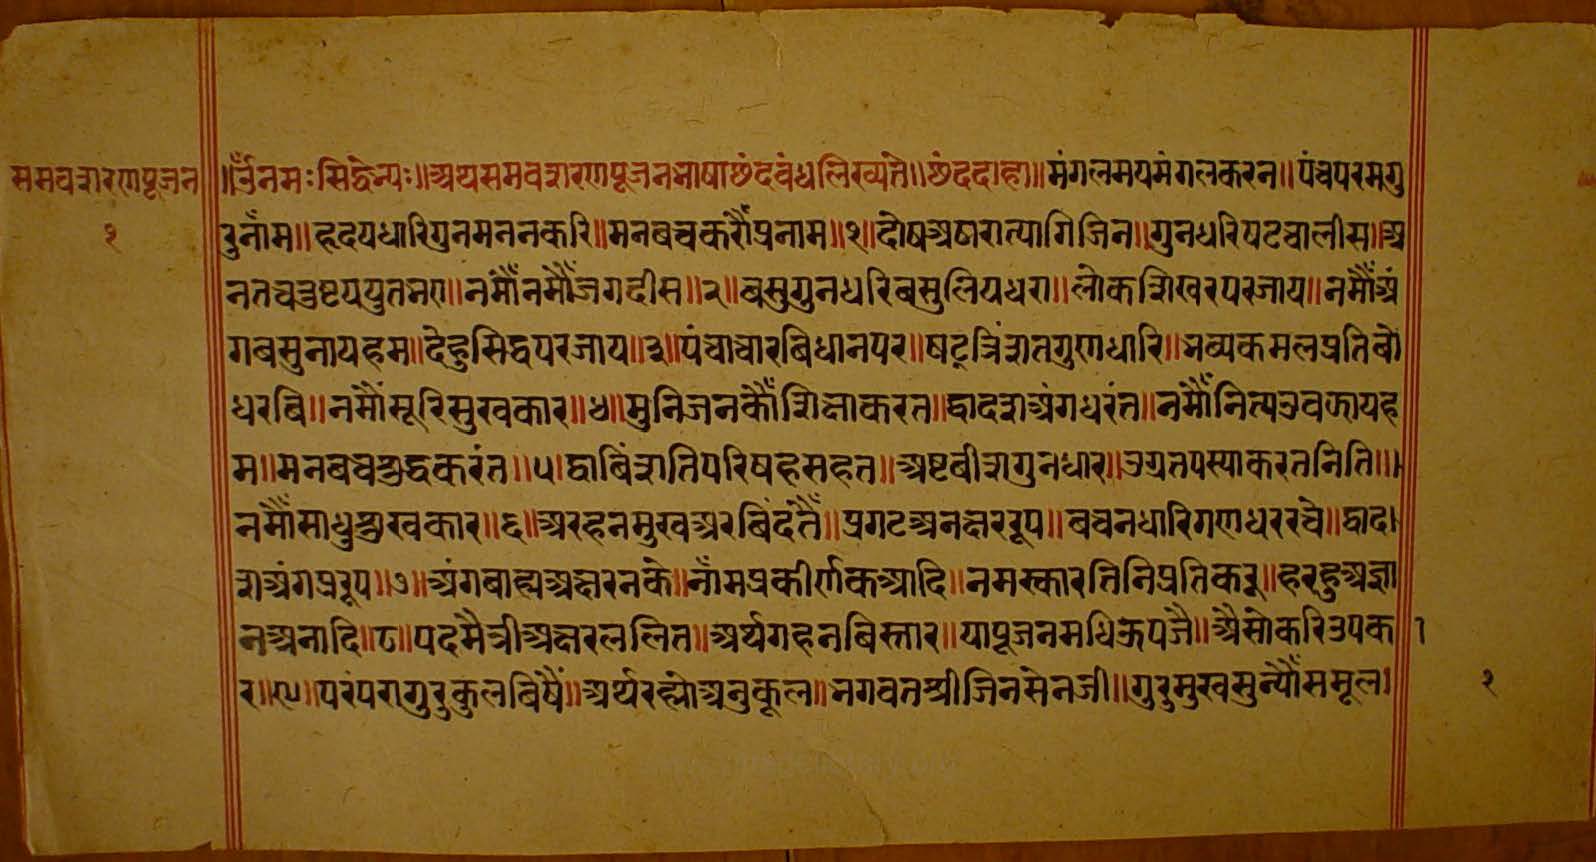 समवशरणपूजन
१
॥ॐनमःसिद्धेभ्यः॥अथसमवशरणपूजनभाषाछंदबंधलिख्यते॥छंददोहा॥मंगलमयमंगलकरन॥पंचपरमगु
रुनाँम॥हृदयधारिगुनमननकरि॥मनबचकरौंप्रनाम॥१॥दोषअठारात्यागिजिन॥गुनधरिषटचालीस॥अ
नतचतुष्टययुतभए॥नमौंनमौंजगदीस॥२॥बसुगुनधरिबसुलियधरा॥लोकशिखरपरजाय॥नमौंअं
गबसुनायहम॥देहुसिद्धपरजाय॥३॥पंचाचारबिधानपर॥षट्त्रिंशतगुणधारि॥भव्यकमलप्रतिबो
धरबि॥नमौंसूरिसुखकार॥४॥मुनिजनकौंशिक्षाकरत॥द्वादशअंगधरंत॥नमौंनित्यउवझायह
म॥मनबचशुद्धकरंत॥५॥द्वाबिंशतिपरिषहसहत॥अष्टबीशगुनधार॥उग्रतपस्याकरतनिति॥
नमौंसाधुसुखकार॥६॥अरहनमुखअरबिंदतैं॥प्रगटअनक्षररूप॥बचनधारिगणधररचे॥द्वाद
शअंगप्ररूप॥७॥अंगबाह्यअक्षरनके॥नाँमप्रकीर्णकआदि॥नमस्कारतिनिप्रतिकरू॥हरहुअज्ञा
नअनादि॥८॥पदमैत्रीअक्षरललित॥अर्थगहनबिस्तार॥यापूजनमधिऊपजै॥अैसोकरिउपक
र॥९॥परंपरागुरुकुलबिषैं॥अर्थरह्योअनुकूल॥भगवतश्रीजिनसेनजी॥गुरुमुखसुन्यौंसमूल।
१